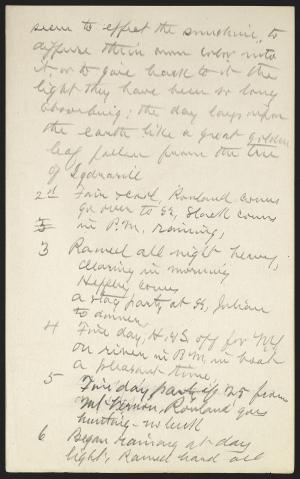 seem to affect the sunshine, to
diffuse their own color into
it, or to give back to it the
light they have been so long
absorbing; the day lays upon
the earth like a great golden
leaf fallen from the tree
of Igdrasill
2d Fair & cool, Rowland comes
go over to comes
in P.M. raining,
3 Rained all night heavy,
clearing in morning
comes
a party at H, Julian
to dinner
4 Fine day, off for NY
on river in P.M. in boat
a pleasant time.
5 Fine day, party of 25 from
Mt Vernon, Rowland goes
hunting - no luck
6 Began raining at day
light, Rained hard all